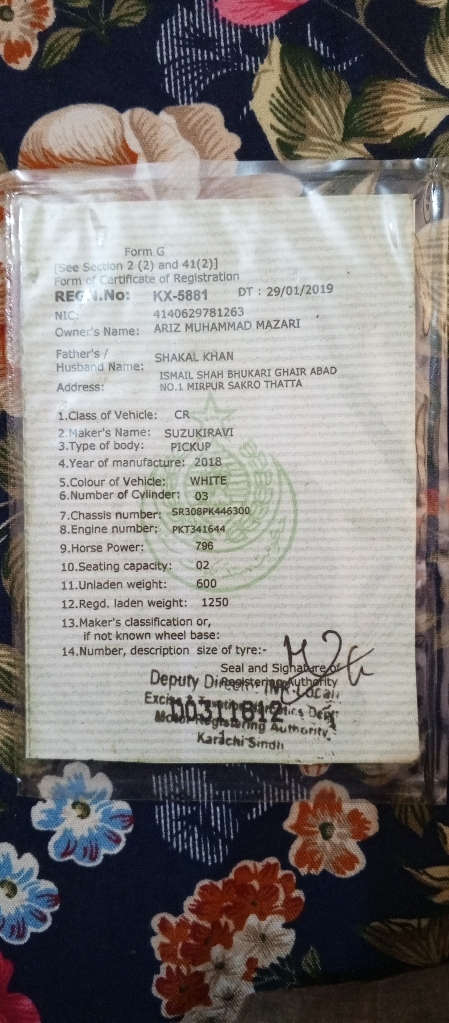 Form G
[See Section 2 (2) and 41(2)]
Form of Certificate of Registration
REGN.No: KX-5881 DT : 29/01/2019
NIC: 4140629781263
Owner's Name: ARIZ MUHAMMAD MAZARI
Father's /
Husband Name: SHAKAL KHAN
Address: ISMAIL SHAH BHUKARI GHAIR ABAD
NO.1 MIRPUR SAKRO THATTA
1.Class of Vehicle: CR
2.Maker's Name: SUZUKIRAVI
3.Type of body: PICKUP
4.Year of manufacture: 2018
5.Colour of Vehicle: WHITE
6.Number of Cylinder: 03
7.Chassis number: SR308PK446300
8.Engine number: PKT341644
9.Horse Power: 796
10.Seating capacity: 02
11.Unladen weight: 600
12.Regd. laden weight: 1250
13.Maker's classification or,
if not known wheel base:
14.Number, description size of tyre:-
Seal and Signature of
Registering Authority
Deputy
Excise Taxation Dept:
Motor Registering Authority
Karachi Sindh